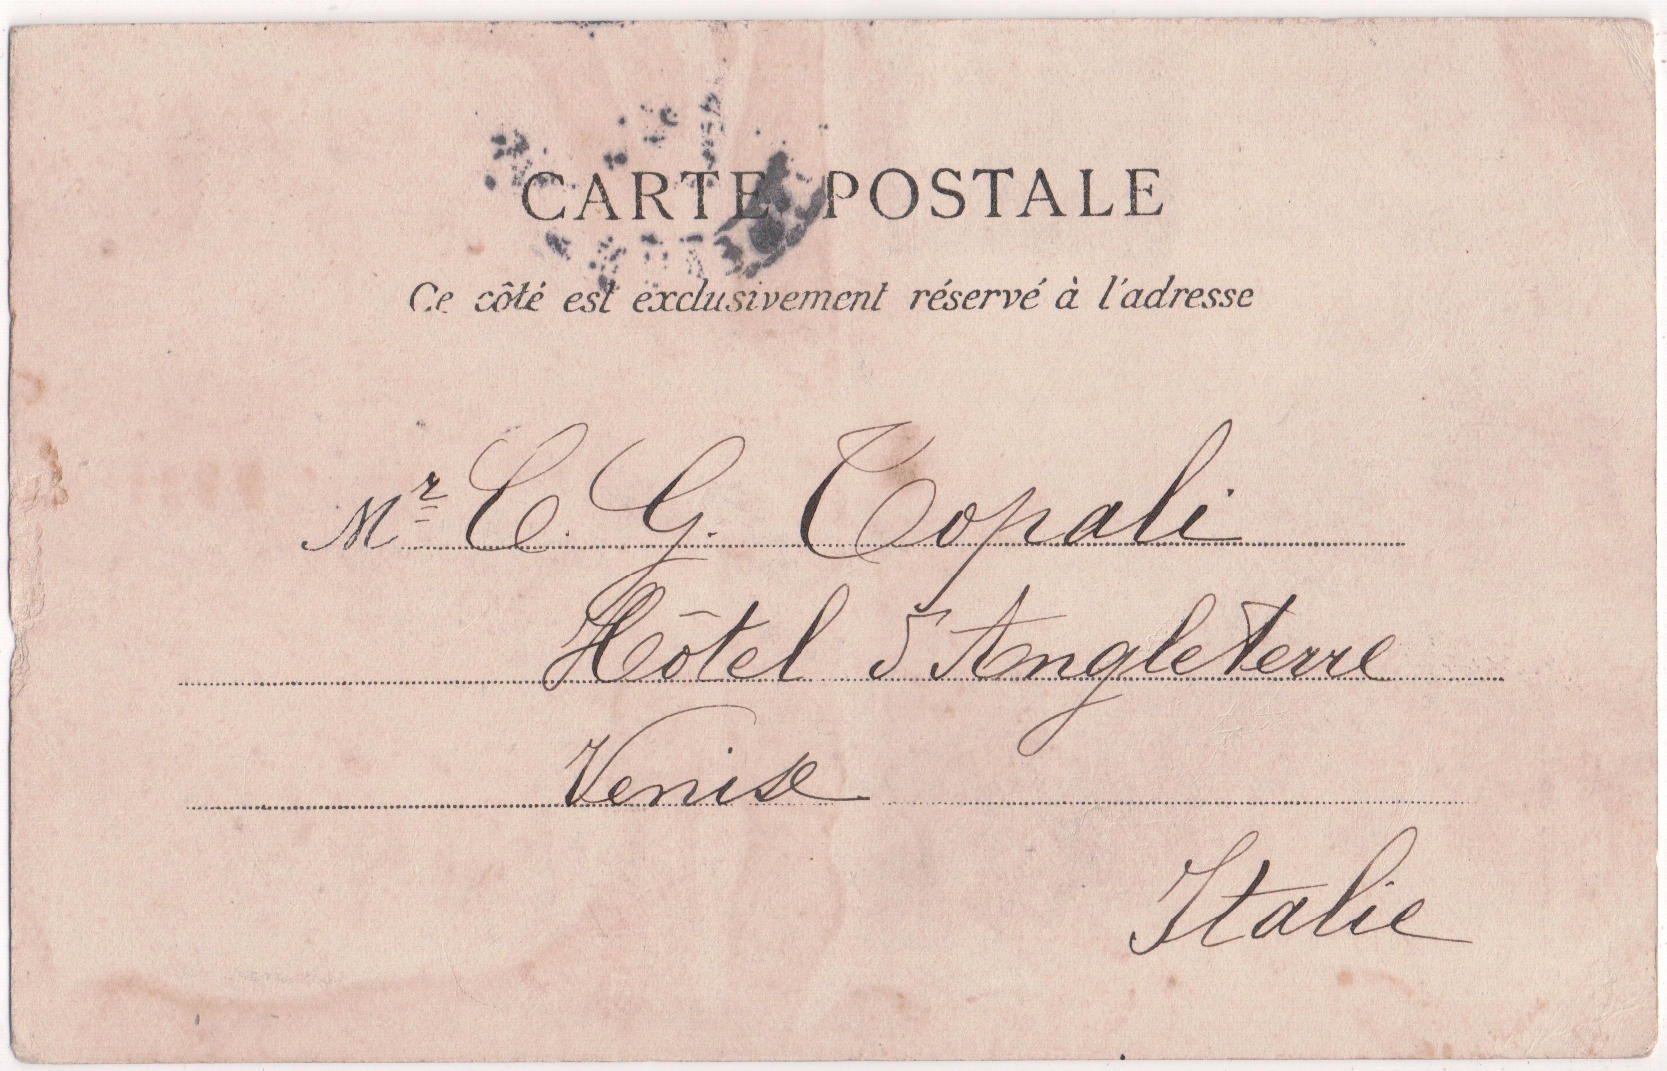 CARTE POSTALE
Ce côté est exclusivement réservé à l'adresse
Mr C. G. Copali
Hôtel d'Angleterre
Venise
Italie